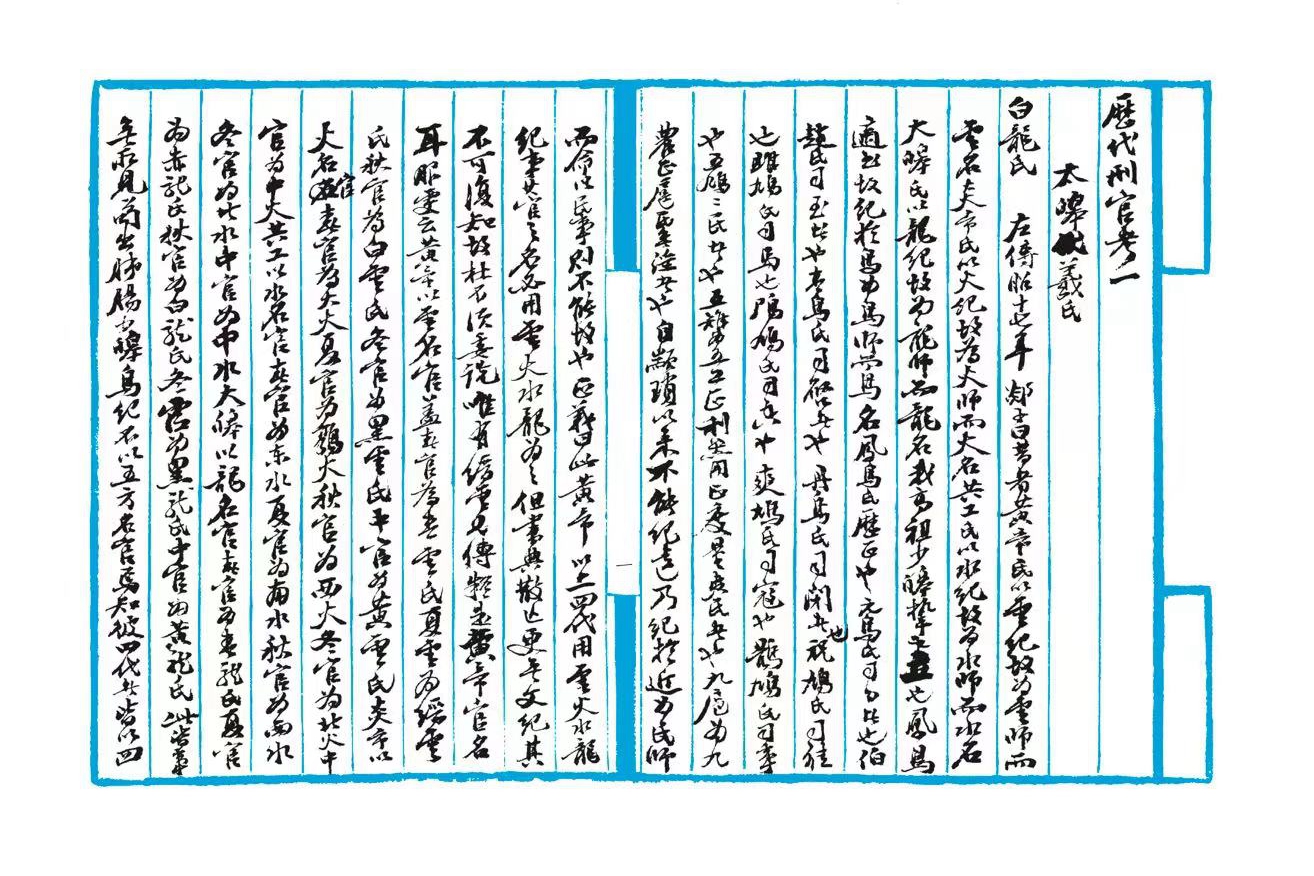 歷代刑官考一
太皞伏羲氏
白龍氏　左傳昭十七年郯子曰昔者黃帝氏以雲紀故為雲師而
雲名炎帝氏以火紀故為火師而火名共工氏以水紀故為水師而水名
大皞氏以龍紀故為龍師而龍名我高祖少皞摯之立也鳳鳥
適至故紀於鳥為鳥師而鳥名鳳鳥氏歷正也元鳥氏司分者也伯
趙氏司至者也青鳥氏司啟者也丹鳥氏司閉者也祝鳩氏司徒
也鴡鳩氏司馬也鳲鳩氏司空也爽鳩氏司寇也鶻鳩氏司事
也五鳩鳩民者也五雉為五工正利器用正度量夷民者也九扈為九
農正扈民無淫者也自顓頊以來不能紀遠乃紀於近為民師
而命以民事則不能故也正義曰此黃帝以上四代用雲火水龍
紀事其官之名必用雲火水龍為之但書典散亡更無文紀其
不可復知故杜不須委說唯有縉雲見傳疑是黃帝官名
耳服虔云黃帝以雲名官蓋春官為青雲氏夏官為縉雲
氏秋官為白雲氏冬官為黑雲氏中官為黃雲氏炎帝以
火名官春官為大火夏官為鶉火秋官為西火冬官為北火中
官為中火共工以水名官春官為東水夏官為南水秋官為西水
冬官為北水中官為中水大皞以龍名官春官為青龍氏夏官
為赤龍氏秋官為白龍氏冬官為黑龍氏中官為黃龍氏此皆事
無所見苟出肺腸少皞鳥紀不以五方名官焉知彼四代者皆以四